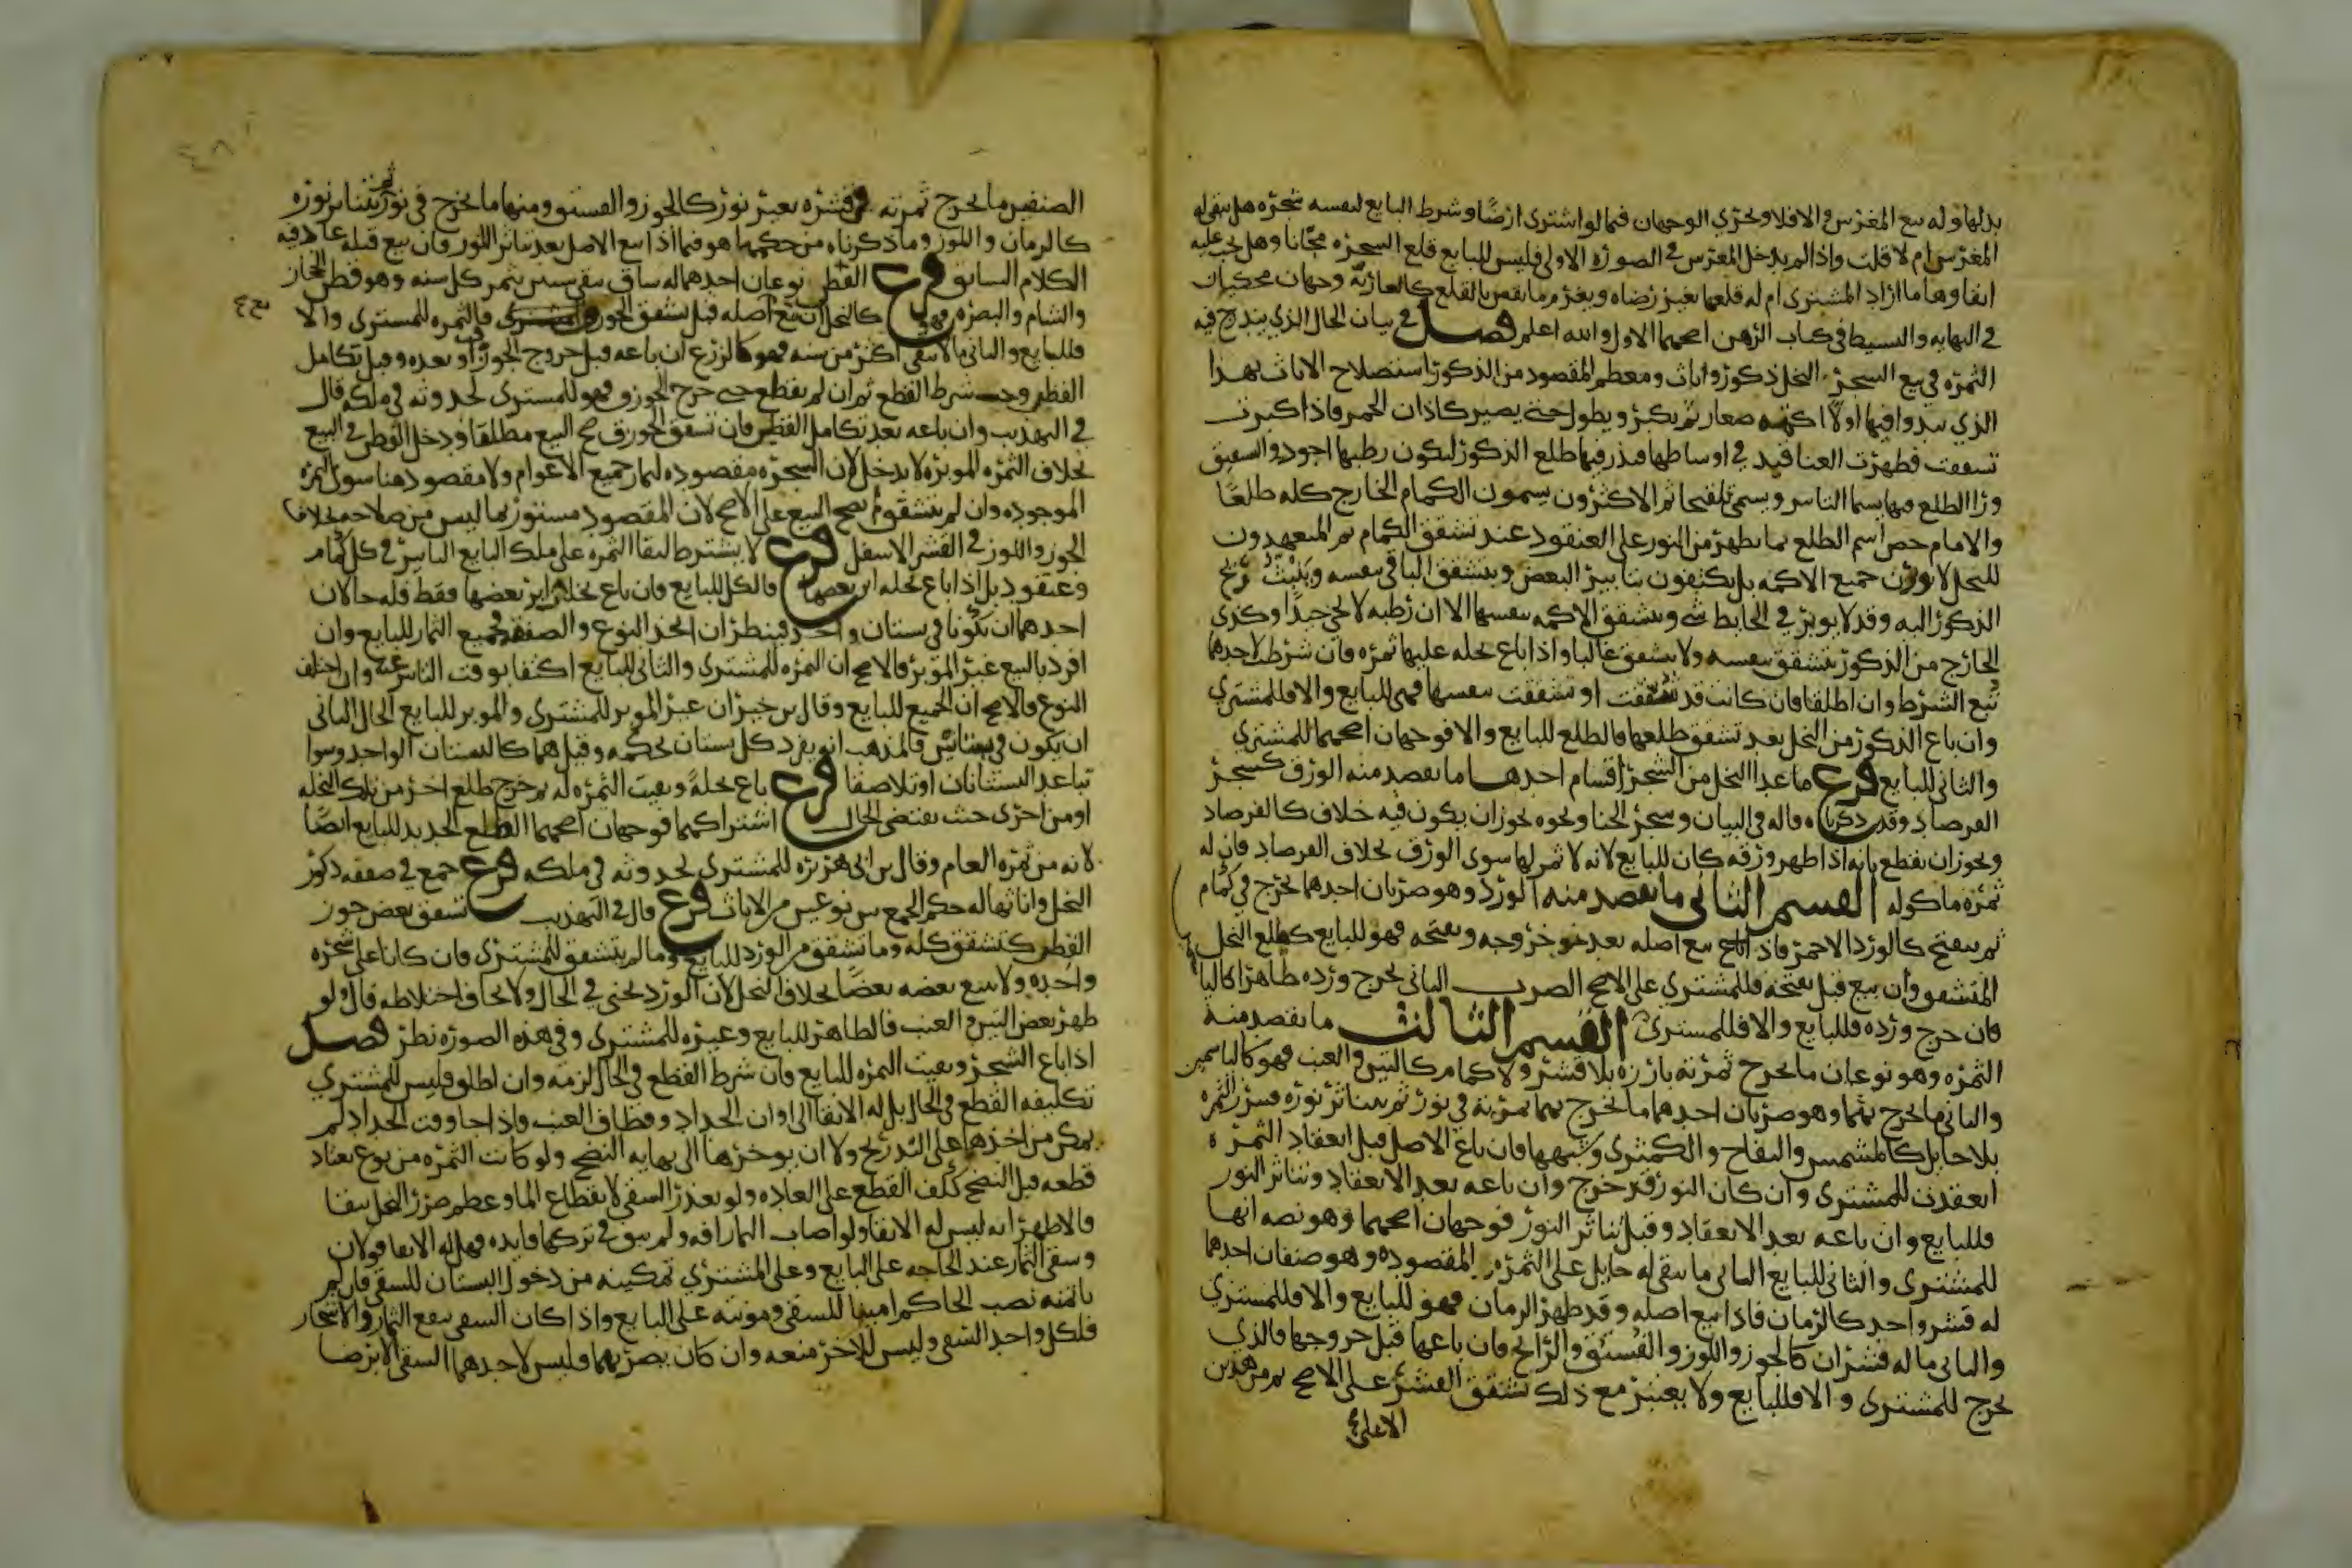 بدلها وله بيع المغرس والافلا ويجري الوجهان فيما لو اشترى ارضا وشرط البايع لنفسه شجره هل يبقى له
المغرس ام لا قلت واذا لم يدخل المغرس في الصوره الاولى فليس للبايع قلع الشجره مجانا وهل يجب عليه
ابقاوها ما اراد المشترى ام له قلعها بغير رضاه ويغرم ما نقص بالقلع كالعاريه وجهان محكيان
في النهايه والبسيط في كتاب الرهن اصحهما الاول والله اعلم فصل في بيان الحال الذي يندرج فيه
الثمره في بيع الشجر النخل ذكور واناث ومعظم المقصود من الذكور استصلاح الاناث بهذا
الذي يبدوا فيها اولا اكمه صغار ثم يكبر ويطول حتى يصير كاذان الحمر فاذا كبرت
تشققت فظهرت العناقيد في اوساطها فيذر فيها طلع الذكور ليكون رطبها اجود والتشقيق
وذر الطلع فيها يسما التابير ويسمى تلقيحا ثم الاكثرون يسمون الكمام الخارج كله طلعا
والامام خص اسم الطلع بما يظهر من النور على العنقود عند تشقق الكمام ثم المتعهدون
للنخل لا يوبرون جميع الاكمه بل يكتفون بتابير البعض ويتشقق الباقي بنفسه وينبث ريح
الذكور اليه وقد لا يوبر في الحايط شي ويتشقق الاكمه بنفسها الا ان رطبه لا يجي جيدا وكذى
الخارج من الذكور يتشقق بنفسه ولا يشقق غالبا واذا باع نخله عليها ثمره فان شرطت لاحدهما
تبع الشرط وان اطلقا فان كانت قد شققت او تشققت بنفسها فهي للبايع والا فللمشتري
وان باع الذكور من النخل بعد تشقق طلعها فالطلع للبايع والا فوجهان اصحهما للمشتري
والثاني للبايع فرع ما عدا النخل من الشجر اقسام احدها ما يقصد منه الورق كشجر
الفرصاد وقد ذكرناه قاله في البيان وشجر الحنا ونحوه يجوز ان يكون فيه خلاف كالفرصاد
ويجوز ان يقطع بانه اذا ظهر ورقه كان للبايع لانه لا ثمر لها سوى الورق بخلاف الفرصاد فان له
ثمره ماكوله القسم الثاني ما يقصد منه الورد وهو ضربان احدهما يخرج في كمام
ثم يتفتح كالورد الاحمر فاذا بيع اصله بعد خروجه وتفتحه فهو للبايع كطلع النخل
المتشقق وان بيع قبل تفتحه فللمشتري على الاصح الضرب الثاني يخرج ورده ظاهرا كالياسمين
فان خرج ورده فللبايع والا فللمشترى القسم الثالث ما يقصد منه
الثمره وهو نوعان ما يخرج ثمرته بارزه بلا قشر ولا كمام كالتين والعنب فهو كالياسمين
والثاني ما يخرج بهما وهو ضربان احدهما ما يخرج ثمرته في نور ثم يتناثر نوره فتبرز الثمره
بلا حايل كالمشمس والتفاح والكمثرى وشبهها فان باع الاصل قبل انعقاد الثمره
انعقدت للمشترى وان كان النور قد خرج وان باعه بعد الانعقاد وتناثر النور
فللبايع وان باعه بعد الانعقاد وقبل تناثر النور فوجهان اصحهما وهو نصه انها
للمشترى والثاني للبايع الثاني ما يبقى له حايل على الثمره المقصوده وهو صنفان احدهما
له قشر واحد كالرمان فاذا بيع اصله وقد ظهر الرمان فهو للبايع والا فللمشتري
والثاني ما له قشران كالجوز واللوز والفستق والرانج فان باعها قبل خروجها فالذي
يخرج للمشترى والا فللبايع ولا يعتبر مع ذلك تشقق القشر على الاصح ثم من هذين
الاعلى
الصنفين ما يخرج ثمرته في قشره بغير نور كالجوز والفستق ومنها ما يخرج في نور ثم يتناثر نوره
كالرمان واللوز وما ذكرناه من حكمهما هو فيما اذا بيع الاصل بعد تناثر النور فان بيع قبله عاد فيه
الكلام السابق فرع القطن نوعان احدهما له ساق يبقى سنين يثمر كل سنه وهو قطن الحجاز
والشام والبصره فهو كالنخل ان بيع اصله قبل تشقق الجوزق فالثمره للمشترى والا
فللبايع والثاني ما لا يبقى اكثر من سنه فهو كالزرع ان باعه قبل خروج الجوزق او بعده وقبل تكامل
القطن وجب شرط القطع ثم ان لم يقطع حتى خرج الجوزق فهو للمشترى لحدوثه في ملكه قال
في التهذيب وان باعه بعد تكامل القطن فان تشقق الجوزق صح البيع مطلقا ودخل القطن في البيع
بخلاف الثمره الموبره لا يدخل لان الشجره مقصوده لثمار جميع الاعوام ولا مقصود هنا سوى الثمره
الموجوده وان لم يتشقق لم يصح البيع على الاصح لان المقصود مستور بما ليس من صلاحه بخلاف
الجوز واللوز في القشر الاسفل فرع لا يشترط لبقا الثمره على ملك البايع التابير في كل كمام
وعنقود بل اذا باع نخله ابر بعضها فالكل للبايع وان باع نخلات ابر بعضها فقط فله حالان
احدهما ان تكونا في بستان واحد فينظر ان اتحد النوع والصفقه فجميع الثمار للبايع وان
افرد بالبيع غير الموبر فالاصح ان الثمره للمشترى والثاني للبايع اكتفا بوقت التابير عنه وان اختلف
النوع فالاصح ان الجميع للبايع وقال بن خيران غير الموبر للمشترى والموبر للبايع الحال الثاني
ان يكون في بستانين فالمذهب انه يفرد كل بستان بحكمه وقيل هما كالبستان الواحد وسوا
تباعد البستانان او تلاصقا فرع باع نخلة وبقيت الثمره له ثم خرج طلع اخر من تلك النخله
او من اخرى حيث يقتضي الحال اشتراكهما فوجهان اصحهما الطلع الجديد للبايع ايضا
لانه من ثمره العام وقال بن ابي هريره للمشترى لحدوثه في ملكه فرع جمع في صفقه ذكور
النخل واناثها له حكم الجمع بين نوعين من الاناث فرع قال في التهذيب تشقق بعض جوز
القطن كتشقق كله وما تشقق من الورد للبايع وما لم يتشقق للمشترى وان كانا على شجره
واحده ولا يتبع بعضه بعضا بخلاف النخل لان الورد يجنى في الحال ولا يخاف اختلاطه قال ولو
ظهر بعض التين والعنب فالظاهر للبايع وغيره للمشترى وفي هذه الصوره نظر فصل
اذا باع الشجر وبقيت الثمره للبايع فان شرط القطع في الحال لزمه وان اطلق فليس للمشتري
تكليفه القطع في الحال بل له الابقا الى اوان الجداد وقطاف العنب فاذا جا وقت الجداد لم
يمكن من اخذها على التدريج ولا ان يوخرها الى نهايه النضج ولو كانت الثمره من نوع يعتاد
قطعه قبل النضج كلف القطع على العاده ولو تعذر السقي لانقطاع الما وعظم ضرر النخل ببقا
فالاظهر انه ليس له الابقا ولو اصاب الثمار افه ولم يبق في تركها فايده فهل له الابقا قولان
وسقي الثمار عند الحاجه على البايع وعلى المشتري تمكينه من دخول البستان للسقي فان لم
ياتمنه نصب الحاكم امينا للسقي ومونته على البايع واذا كان السقي ينفع الثمار والاشجار
فلكل واحد السقي وليس للاخر منعه وان كان يضر بهما فليس لاحدهما السقي الا برضا